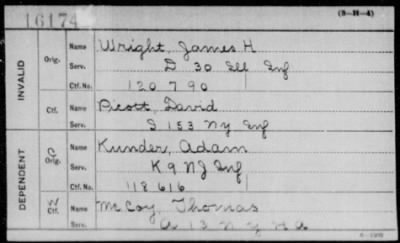 16174
(3-H-4)
INVALID
Orig.
Name Wright, James H
Serv. D 30 Ill Inf
Ctf. No. 120790
Ctf.
Name Picott, David
Serv. I 153 NY Inf
DEPENDENT
Orig.
Name Kunder, Adam
Serv. K 9 NJ Inf
Ctf. No. 118616
Ctf.
Name McCoy Thomas
Serv. A 13 N Y H A